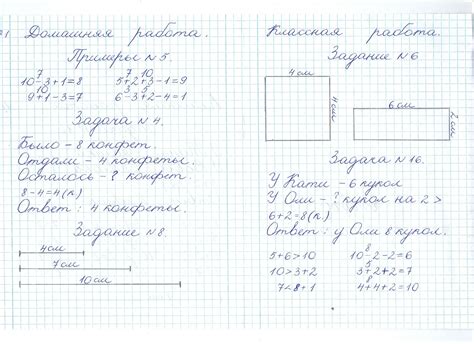 Домашняя работа.
Примеры №5.
7
10-3+1=8
7 10
5+2+3-1=9
9+1-3=7
3 5
6-3+2-4=1
Задача №4.
Было - 8 конфет.
Отдали - 4 конфеты.
Осталось - ? конфет.
8-4=4(к)
Ответ: 4 конфеты.
Задание №8.
4см
7см
10 см
Классная работа.
Задание №6
4см
4см
6см
2см
Задача №16.
У Кати - 6 кукол
У Оли - ? кукол на 2 >
6+2=8(к)
Ответ: у Оли 8 кукол.
5+6>10
8
10-2-2=6
10>3+2
5
3+2+2=7
7<8+1
8
4+4+2=10